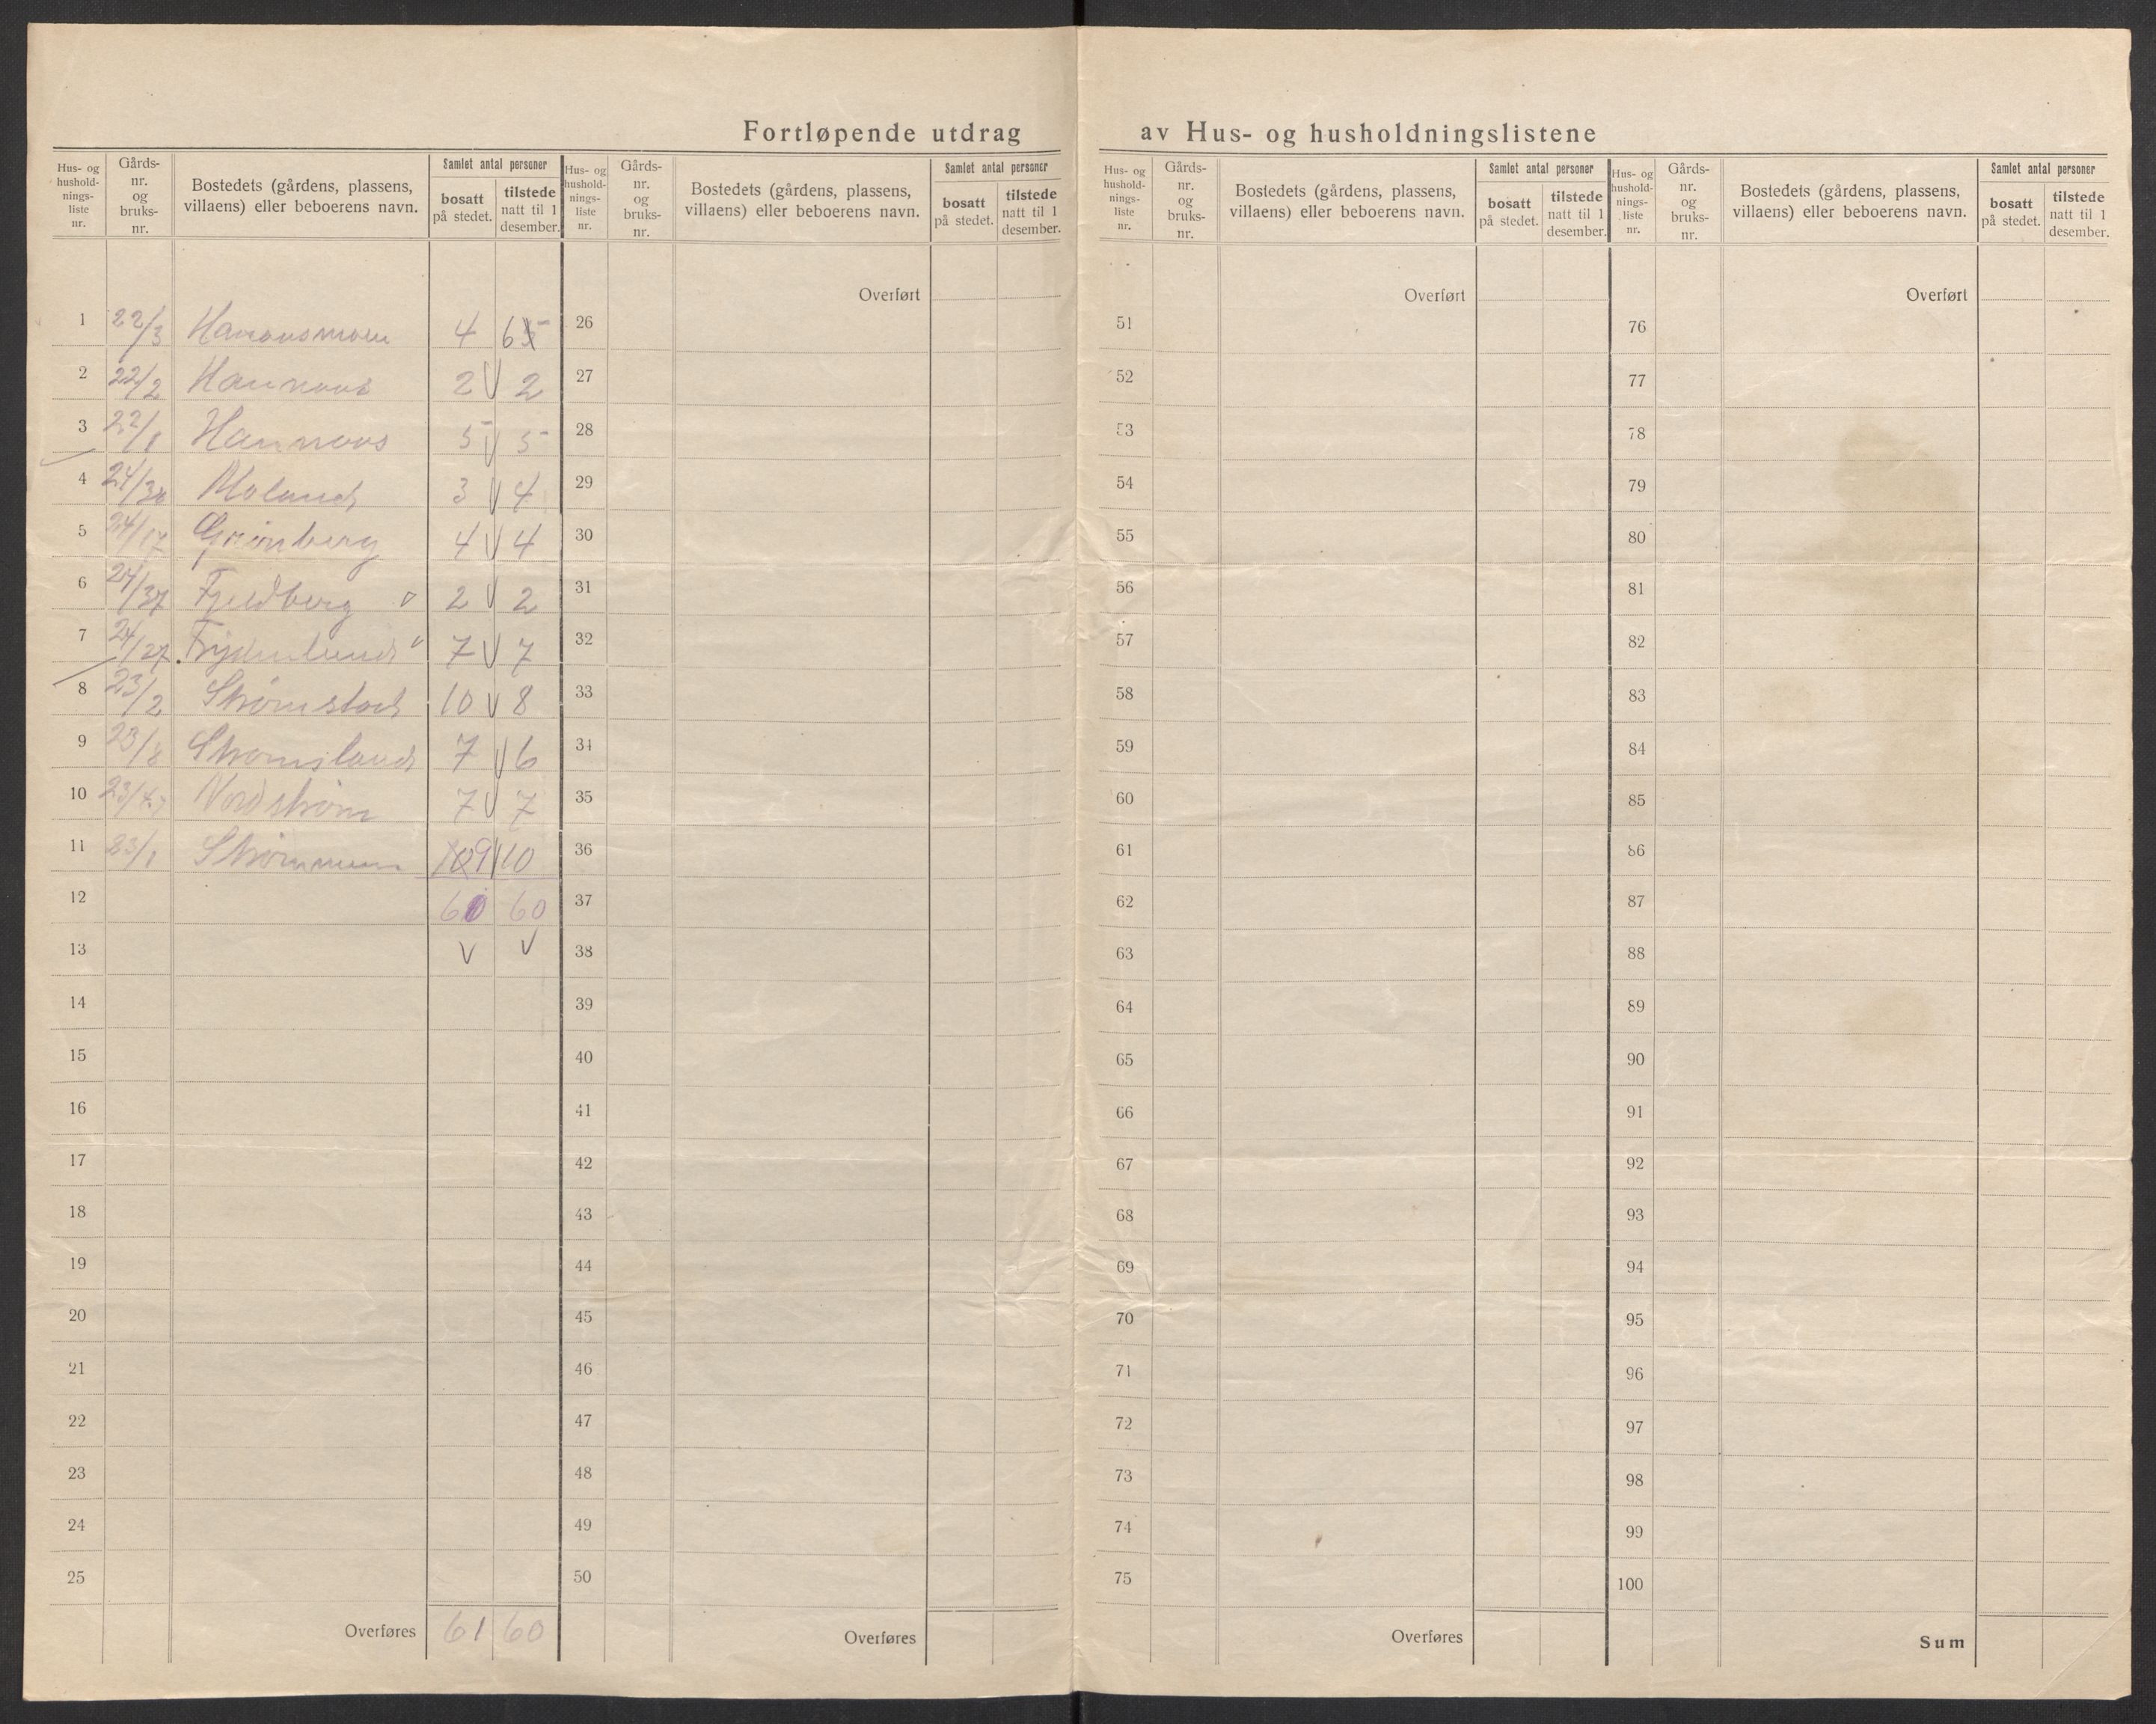 Fortløpende utdrag av Hus- og husholdningslistene
Hus- og hushold-nings-liste nr. Gårds-nr. og bruks-nr. Bostedets (gårdens, plassens, villaens) eller beboerens navn. Samlet antal personer bosatt på stedet. tilstede natt til 1 desember.
1 22/3 4 6
2 22/2 Hannaas 2 V 2
3 22/1 Hannaas 5 V 5
4 24/30 Moland 3 V 4
5 24/17 Grønberg 4 V 4
6 24/37 Fjeldberg 2 V 2
7 24/27 Frydenlund 7 V 7
8 23/2 Strømstad 10 V 8
9 23/8 Strømsland 7 V 6
10 Nordstrøm 7 V 7
11 23/1 Strømmen 10 9 V 10
12 60 60
13 V V
14
15
16
17
18
19
20
21
22
23
24
25
Overføres 61 60
Hus- og hushold-nings-liste nr. Gårds-nr. og bruks-nr. Bostedets (gårdens, plassens, villaens) eller beboerens navn. Samlet antal personer bosatt på stedet. tilstede natt til 1 desember.
Overført
26
27
28
29
30
31
32
33
34
35
36
37
38
39
40
41
42
43
44
45
46
47
48
49
50
Overføres
Hus- og hushold-nings-liste nr. Gårds-nr. og bruks-nr. Bostedets (gårdens, plassens, villaens) eller beboerens navn. Samlet antal personer bosatt på stedet. tilstede natt til 1 desember.
Overført
51
52
53
54
55
56
57
58
59
60
61
62
63
64
65
66
67
68
69
70
71
72
73
74
75
Overføres
Hus- og hushold-nings-liste nr. Gårds-nr. og bruks-nr. Bostedets (gårdens, plassens, villaens) eller beboerens navn. Samlet antal personer bosatt på stedet. tilstede natt til 1 desember.
Overført
76
77
78
79
80
81
82
83
84
85
86
87
88
89
90
91
92
93
94
95
96
97
98
99
100
Sum